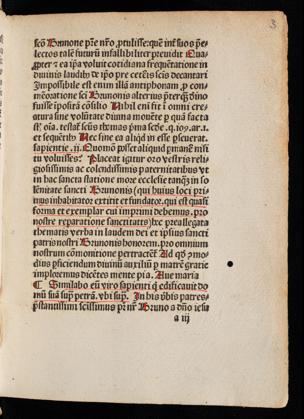 3
scō Brunone pr̄e nr̄o ꝓtulisse: quē int̄ suos p̄e
lectos tale futurū infallibiliter preuidit Qua
ꝓpter ⁊ ea ip̄a voluit cotidiana frequētatione in
diuinis laudibꝰ de ip̄o pre ceteris scis̄ decantari
Impossibile est enim illā antiphonam ꝓ com
memoratione sci Brunonis
fuisse īpositā Nihil eni fit ī omni cre
atura sine volūtate diuina mouēte ꝑ quā facta
et sequētibꝰ Nec sine ea aliqd in esse ꝑseuerat.
sapientie .ii. Quomō posset aliquid ꝑmanē nisi
tu voluisses? Placeat igitur oro vestris reli
giosissimis ac colendissimis paternitatibus vt
in hac sancta statione more ecclesie tanqꝫ in so
lēnitate sancti Brunonis (qui huius loci pri
mus inhabitator extitit et fundator. qui est quasi
forma et exemplar cui imprimi debemus. pro
nostre reparatione sanctitatis) hec preallegata
thematis verba in laudem dei et ipsius sancti
patris nostri Brunonis honorem. pro omnium
nostrum cōmonitione pertractē Ad qd̄ mo
dus ꝑficiendum diuinū auxiliū ꝑ matrē gratie
imploremus dicētes mente pia. Aue maria
¶ Similabo eū viro sapienti q̄ edificauit do
mū suā sup̄ petrā. vbi sup̄. In his v̄bis patres
p̄stantissimi scissimus pr̄ nr̄ Bruno a dn̄o iesu
a iij